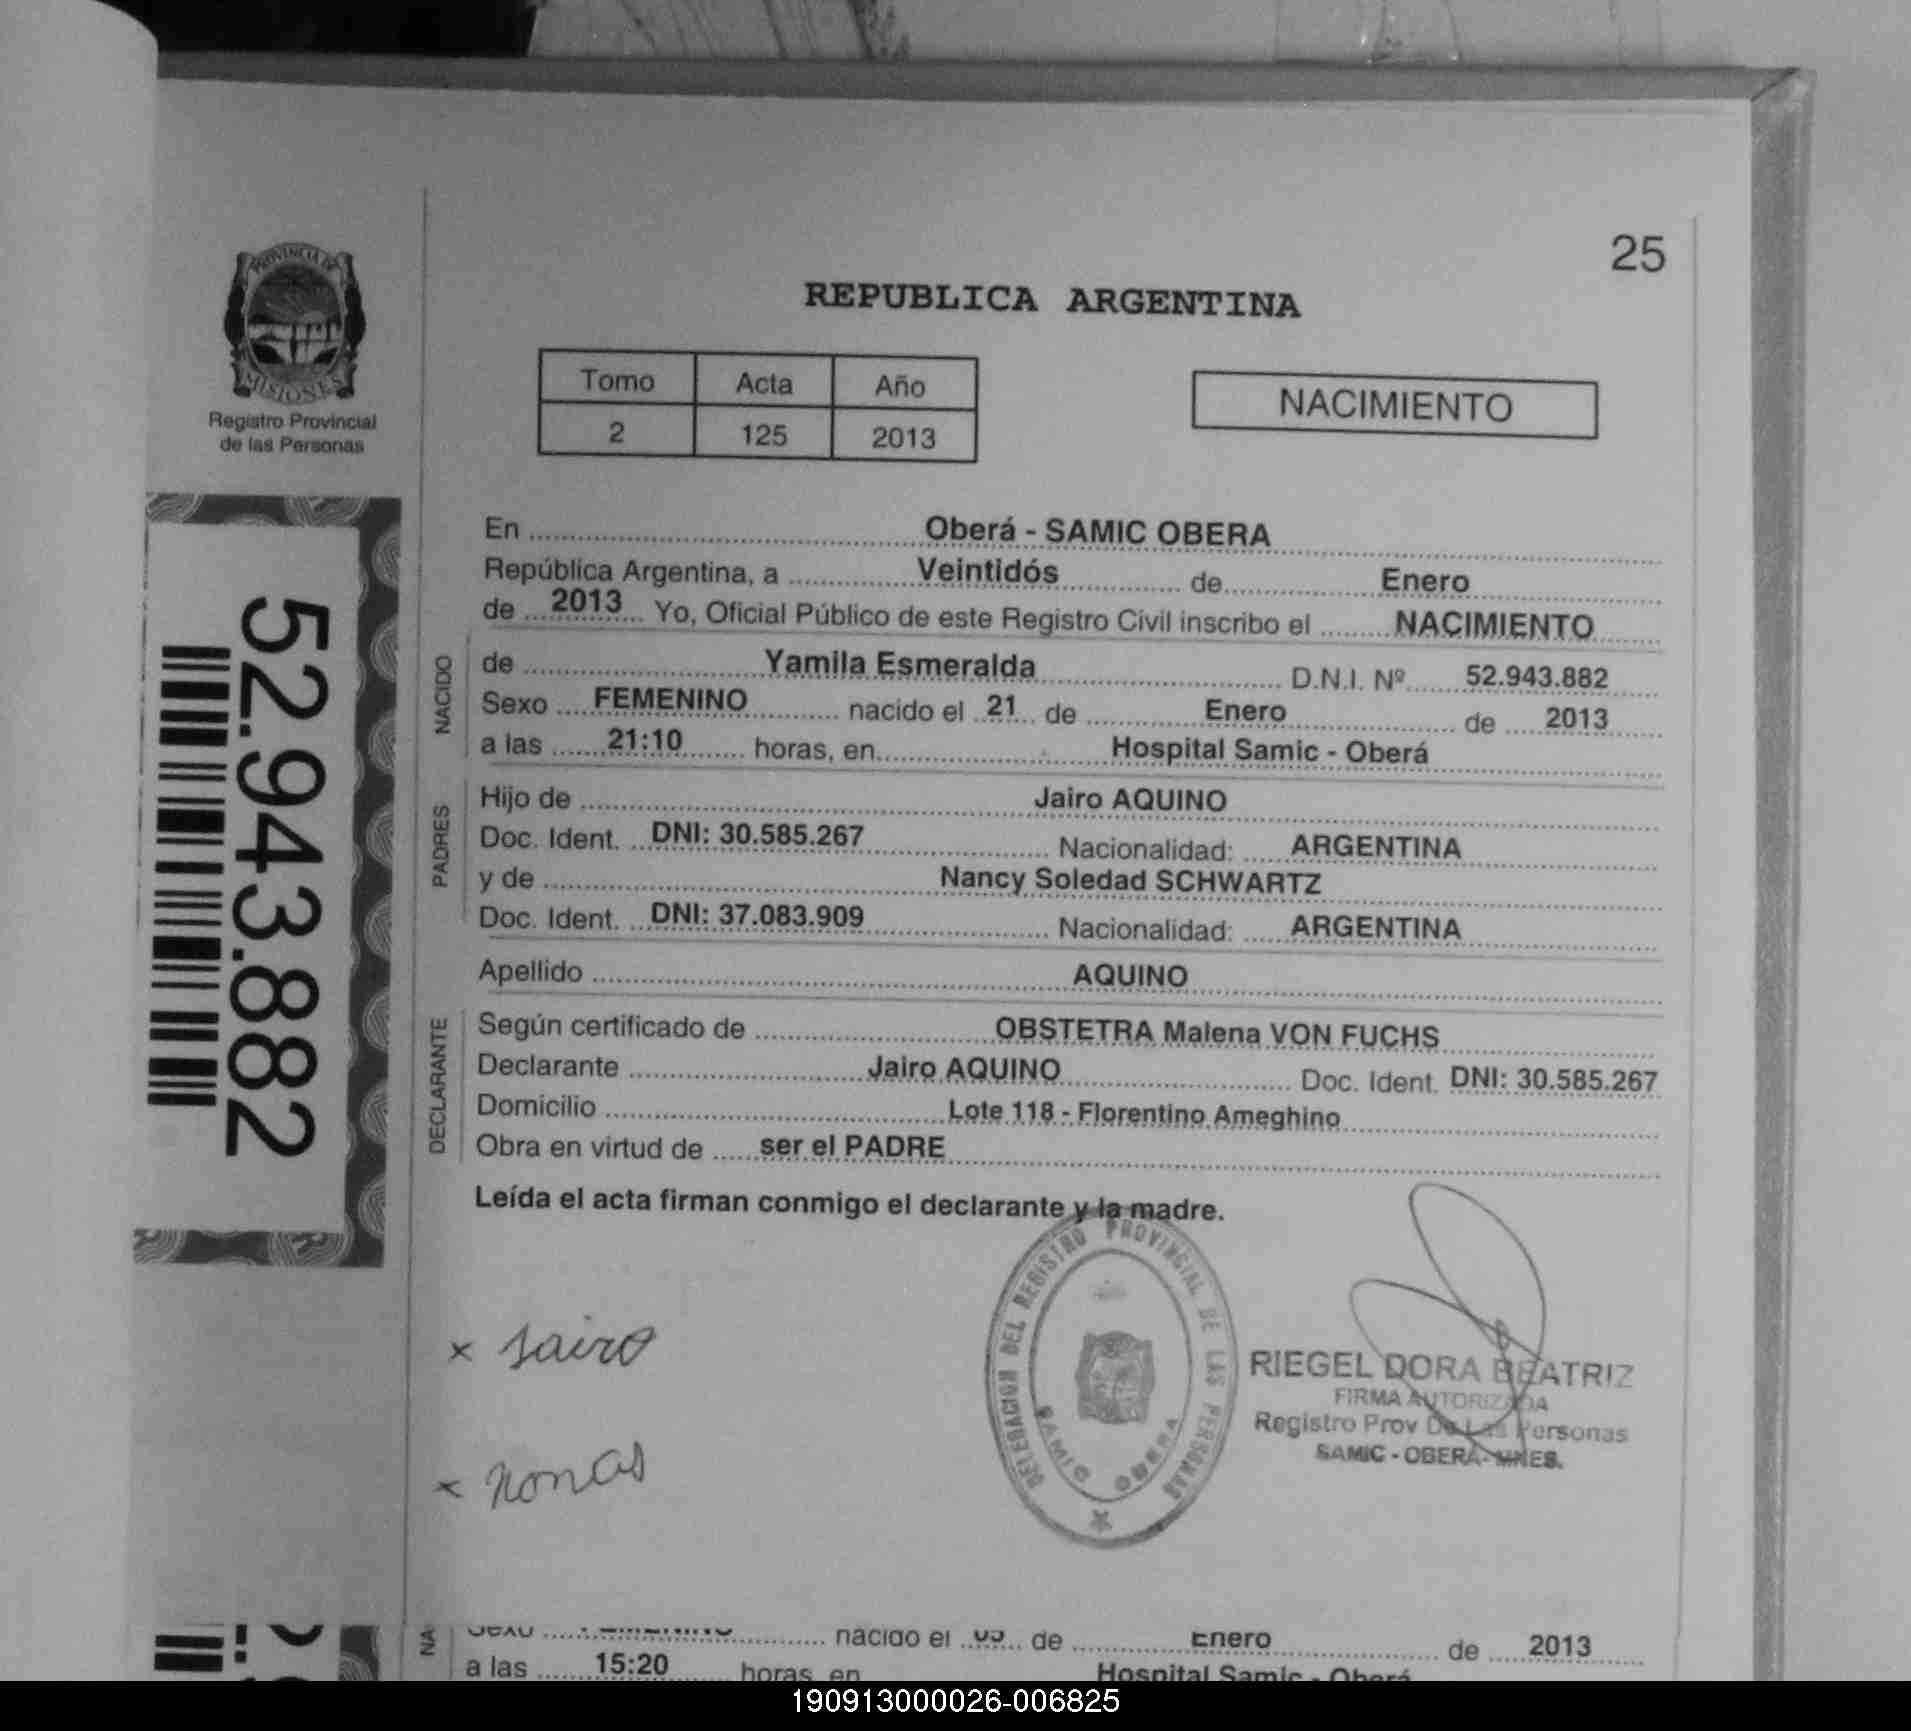 25
PROVINCIA DE
MISIONES
Registro Provincial
de las Personas
REPUBLICA ARGENTINA
Tomo Acta Año
2 125 2013
NACIMIENTO
52.943.882
En Oberá - SAMIC OBERA
República Argentina, a Veintidós de Enero
de 2013 Yo, Oficial Público de este Registro Civil inscribo el NACIMIENTO
NACIDO
de Yamila Esmeralda D.N.I. Nº 52.943.882
Sexo FEMENINO nacido el 21 de Enero de 2013
a las 21:10 horas, en Hospital Samic - Oberá
PADRES
Hijo de Jairo AQUINO
Doc. Ident. DNI: 30.585.267 Nacionalidad: ARGENTINA
y de Nancy Soledad SCHWARTZ
Doc. Ident. DNI: 37.083.909 Nacionalidad: ARGENTINA
Apellido AQUINO
DECLARANTE
Según certificado de OBSTETRA Malena VON FUCHS
Declarante Jairo AQUINO Doc. Ident. DNI: 30.585.267
Domicilio Lote 118 - Florentino Ameghino
Obra en virtud de ser el PADRE
Leída el acta firman conmigo el declarante y la madre.
DELEGACION DEL REGISTRO PROVINCIAL DE LAS PERSONAS
SAMIC OBERA
x Jairo
x
RIEGEL DORA BEATRIZ
FIRMA AUTORIZADA
Registro Prov De Las Personas
SAMIC - OBERA - MNES.
NA
Sexo FEMENINO nacido el de Enero de 2013
a las 15:20 horas, en Hospital Samic - Oberá
190913000026-006825